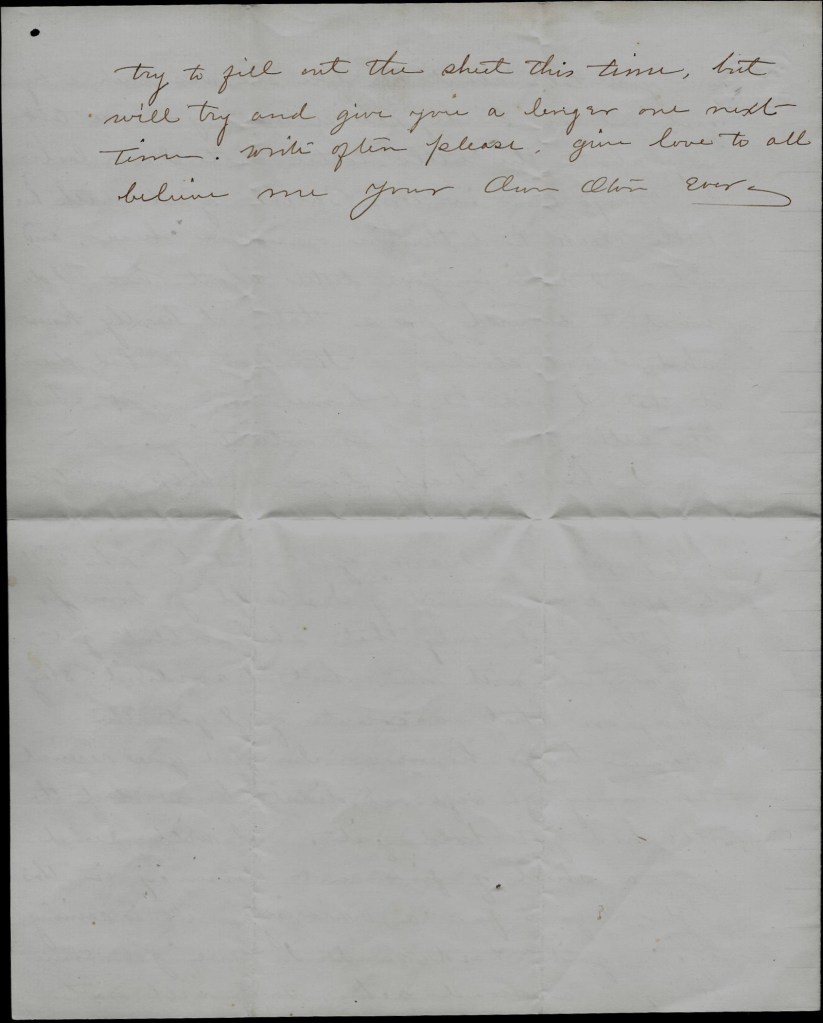 try to fill out the sheet this time, but
will try and give you a longer one next
time. write often please. give love to all
believe me your Own Ever